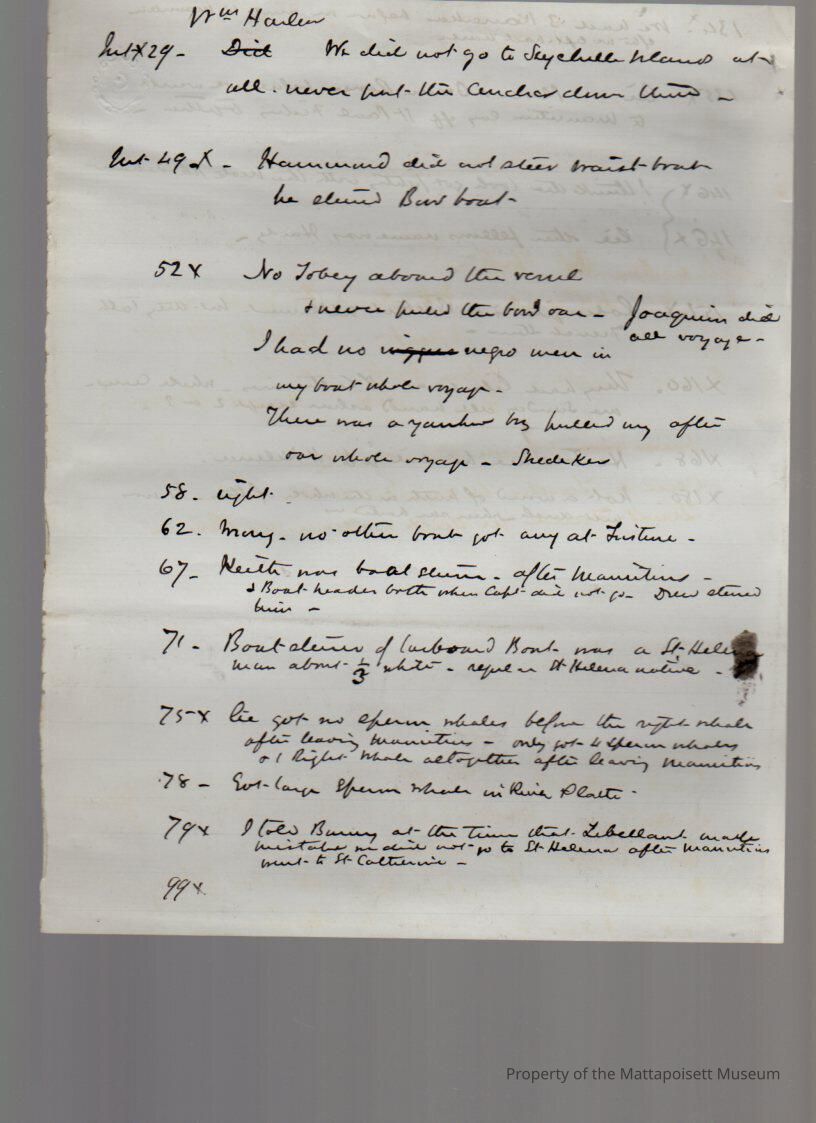 Wm Harlow
Int X 29 - Did We did not go to Seychelle Islands at
all. never put the anchor down there -
Int 49 X - Hammond did not steer waist boat
he steered Bow boat -
52 X No Tobey aboard the vessel
& never pulled the bow oar - Joaquin did
all voyage -
I had no niggers negro men in
my boat whole voyage -
There was a yankee boy pulled my after
oar whole voyage - Shedeker
58. right.
62. Wrong - no other boat got any at
67 - Keith was boat steerer - after Mauritius -
& Boat header both when Capt did not go - Drew steered
him -
71 - Boat steerer of larboard Boat was a St Helena
man about 1/3 white - regular St Helena native -
75 X We got no sperm whales before the right whale
after leaving Mauritius - only got 4 Sperm whales
& 1 Right whale altogether after leaving Mauritius
78 - Got large Sperm whale in River Platte -
79 X I told at the time that Libellant made
mistake we did not go to St Helena after Mauritius
went to St Catherine -
99 X
Property of the Mattapoisett Museum